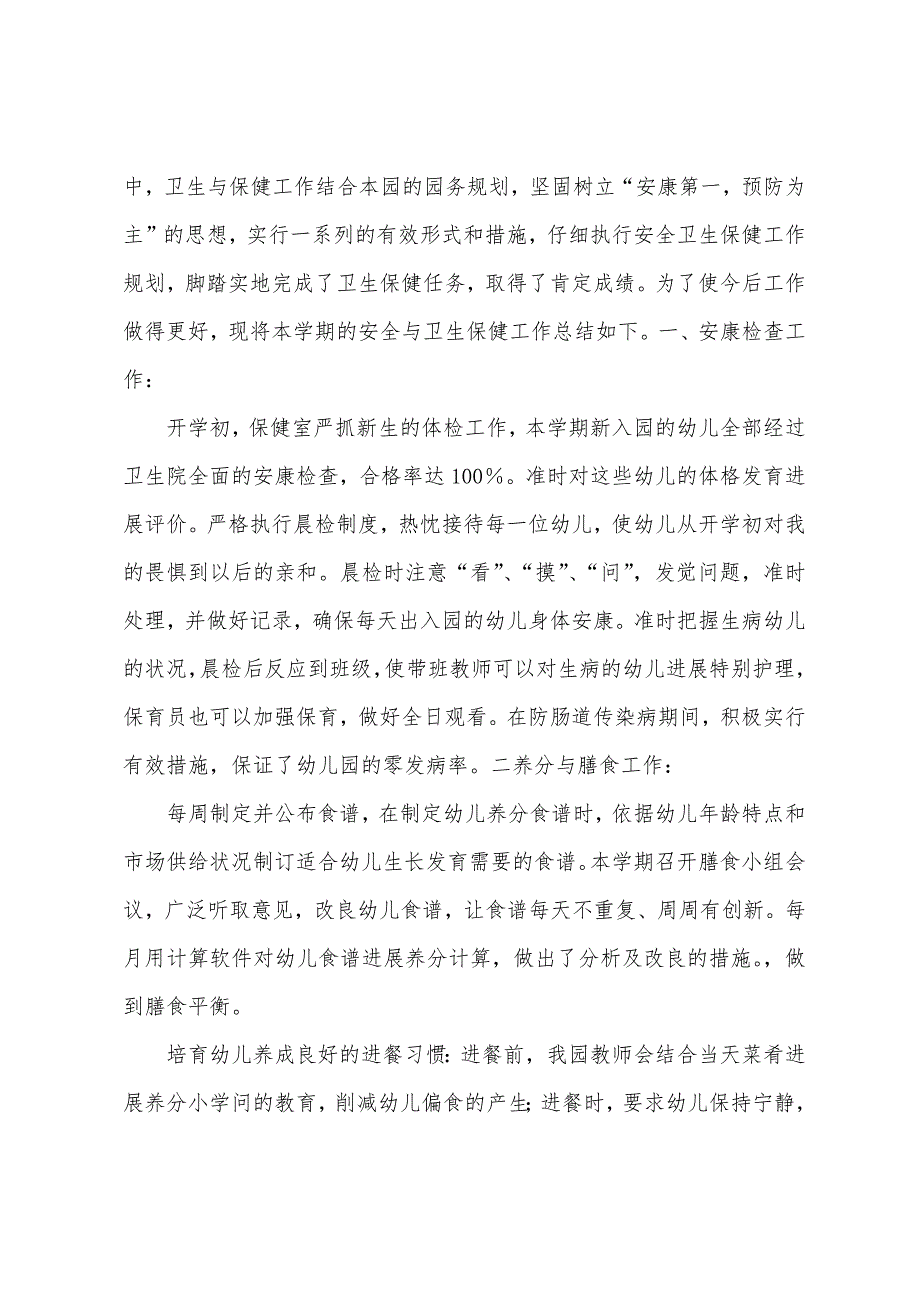 中，卫生与保健工作结合本园的园务规划，坚固树立“安康第一，预防为
主”的思想，实行一系列的有效形式和措施，仔细执行安全卫生保健工作
规划，脚踏实地完成了卫生保健任务，取得了肯定成绩。为了使今后工作
做得更好，现将本学期的安全与卫生保健工作总结如下。一、安康检查工
作：
开学初，保健室严抓新生的体检工作，本学期新入园的幼儿全部经过
卫生院全面的安康检查，合格率达 100％。准时对这些幼儿的体格发育进
展评价。严格执行晨检制度，热忱接待每一位幼儿，使幼儿从开学初对我
的畏惧到以后的亲和。晨检时注意“看”、“摸”、“问”，发觉问题，准时
处理，并做好记录，确保每天出入园的幼儿身体安康。准时把握生病幼儿
的状况，晨检后反应到班级，使带班教师可以对生病的幼儿进展特别护理，
保育员也可以加强保育，做好全日观看。在防肠道传染病期间，积极实行
有效措施，保证了幼儿园的零发病率。二养分与膳食工作：
每周制定并公布食谱，在制定幼儿养分食谱时，依据幼儿年龄特点和
市场供给状况制订适合幼儿生长发育需要的食谱。本学期召开膳食小组会
议，广泛听取意见，改良幼儿食谱，让食谱每天不重复、周周有创新。每
月用计算软件对幼儿食谱进展养分计算，做出了分析及改良的措施。，做
到膳食平衡。
培育幼儿养成良好的进餐习惯：进餐前，我园教师会结合当天菜肴进
展养分小学问的教育，削减幼儿偏食的产生；进餐时，要求幼儿保持宁静，